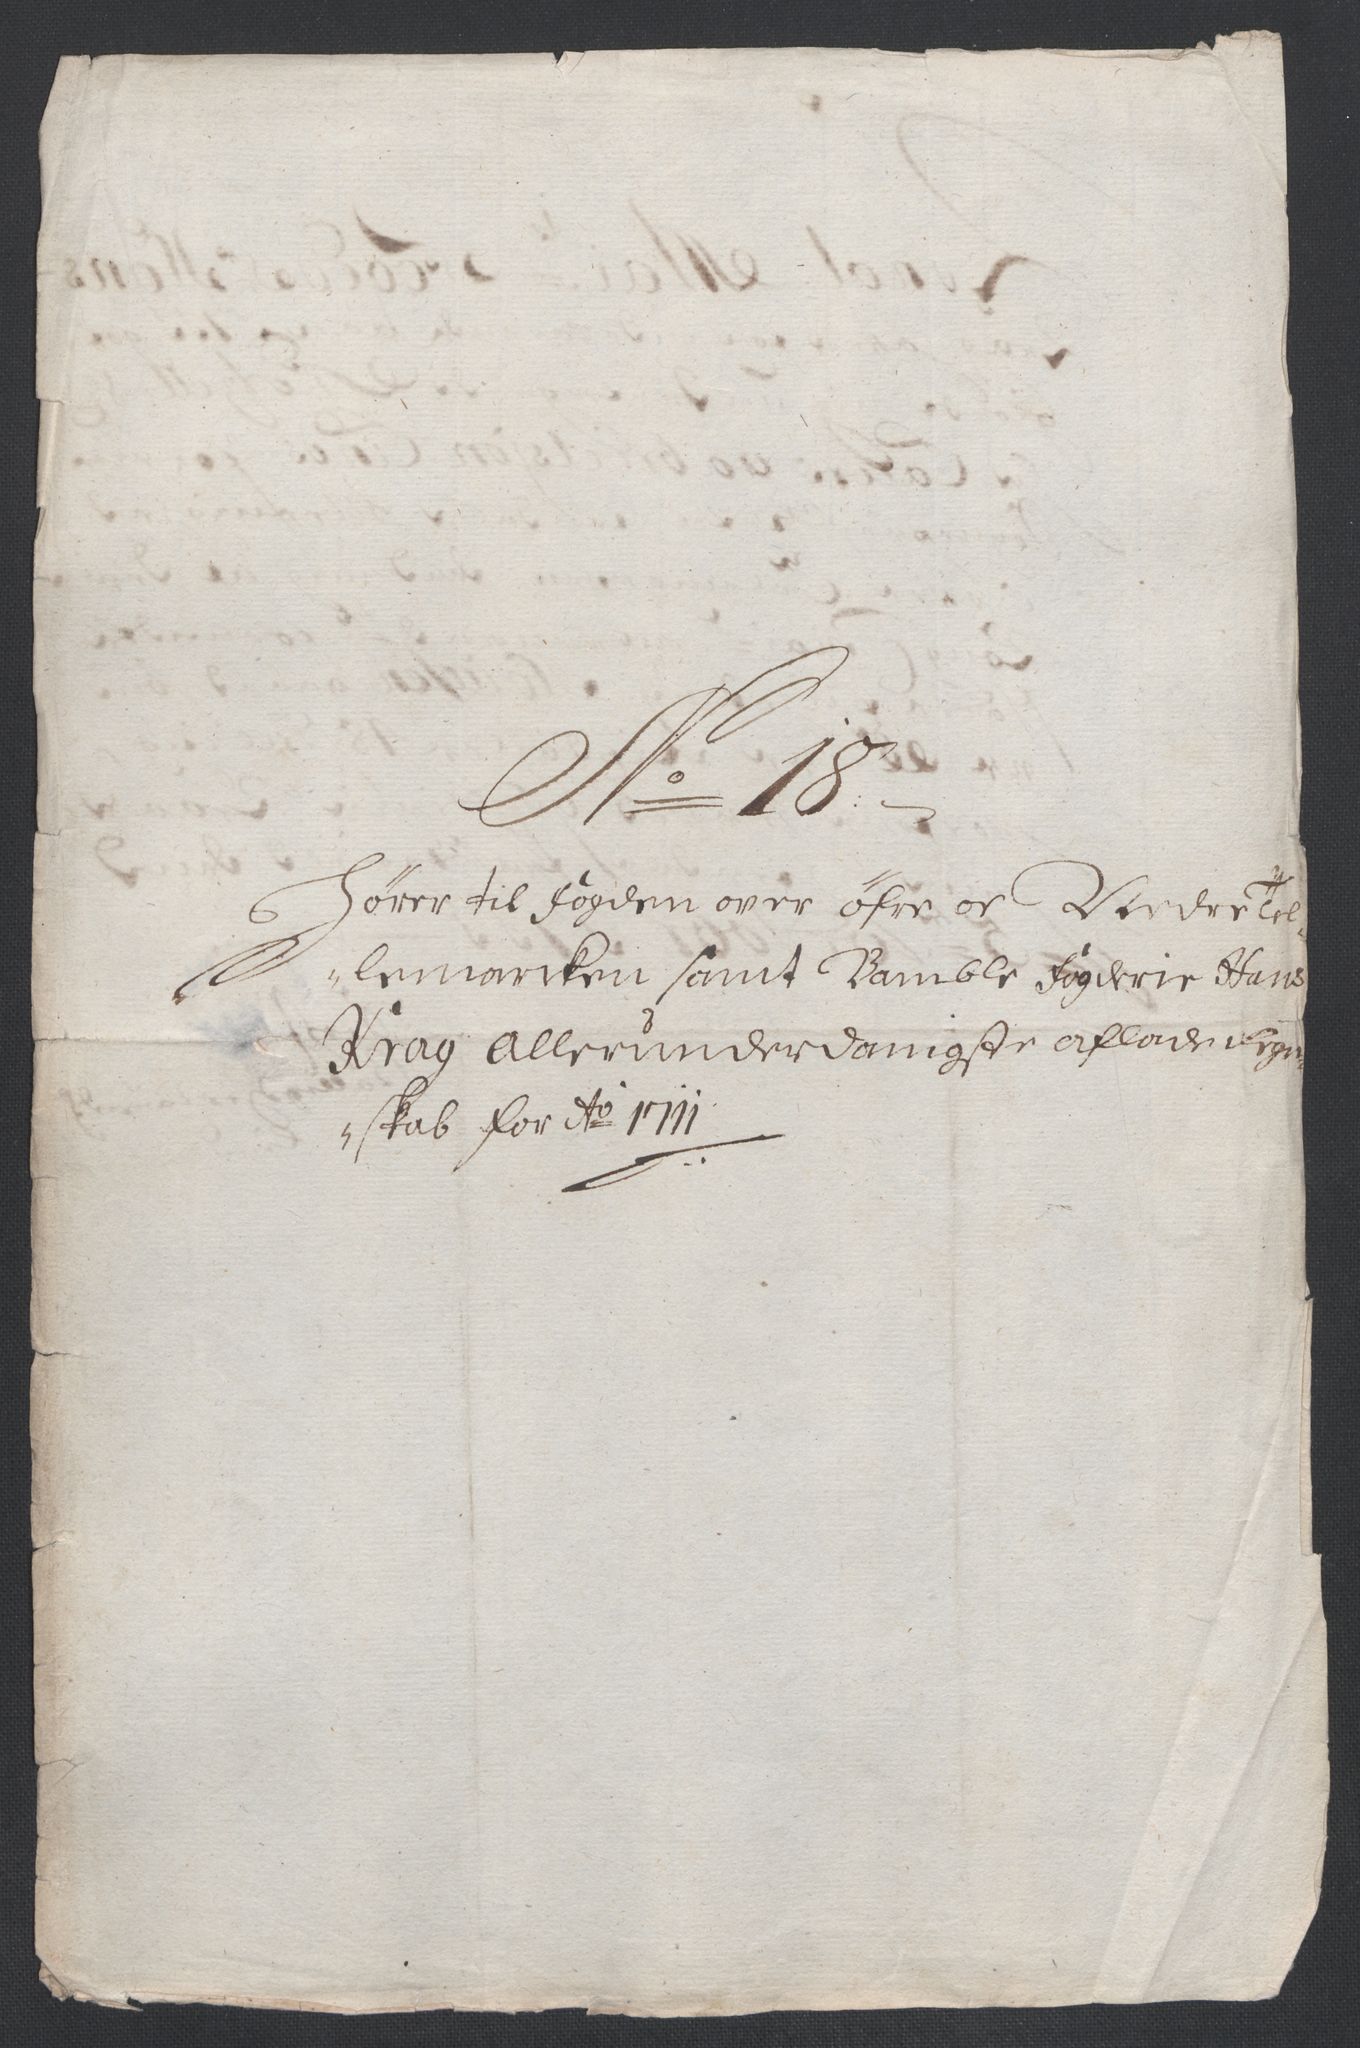 No 18
Hører til Fogden over øfre oc Nedre Tel-
-lemarcken samt Bamble Fogderie Hans
Krag Allerunderdanigste aflade Regn-
-skab for Ao 1711